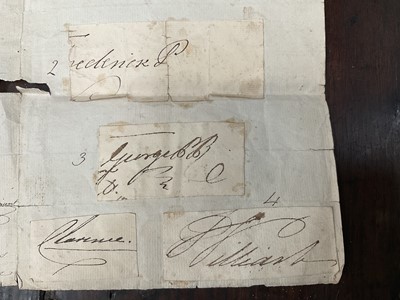 2 Frederick P
3 George PR
4
Clarence. William